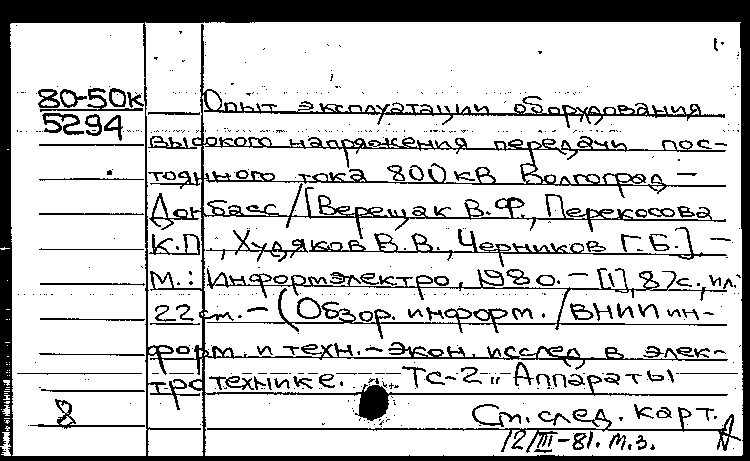 1.
80-50к
5294
Опыт эксплуатации оборудования
высокого напряжения передачи пос-
тоянного тока 800 кВ Волгоград –
Донбасс / [Верещак В.Ф., Перекосова
К.П., Худяков В.В., Черников Г.Б.]. –
М.: Информэлектро, 1980. – [1], 87с., ил.
22 см. – (Обзор. информ. / ВНИИ ин-
форм. и техн.-экон. исслед. в элек-
тротехнике. ТС-2 „Аппараты
См. след. карт.
8
12/III-81. т.з.